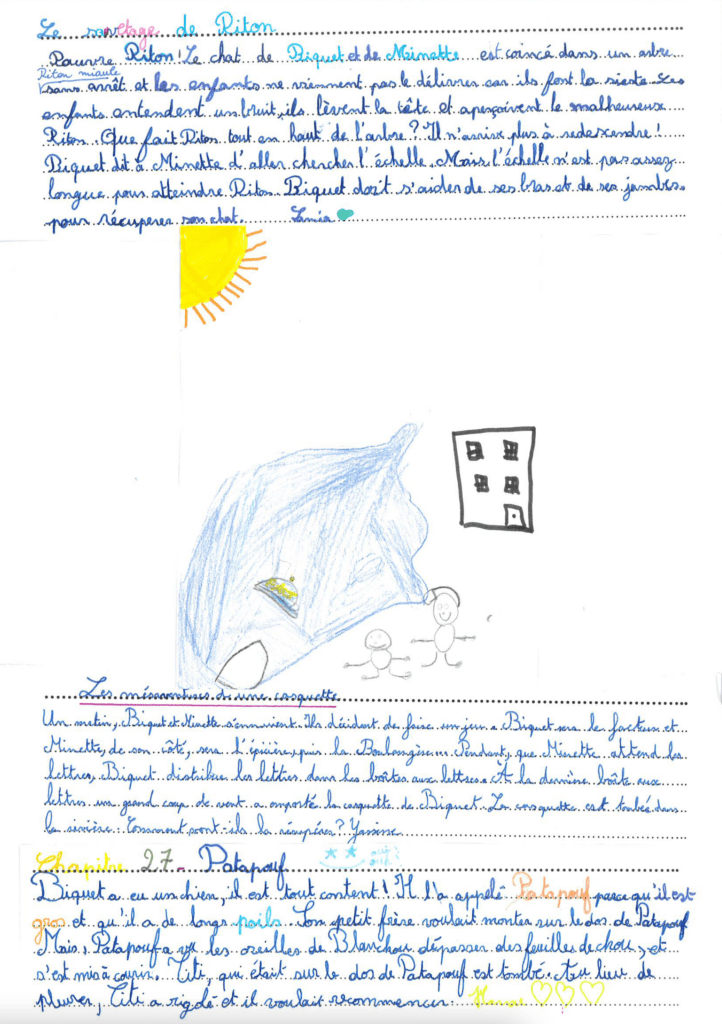 Le sauvetage de Riton
Pauvre Riton ! Le chat de Biquet et de Minette est coincé dans un arbre.
Riton miaule
sans arrêt et les enfants ne viennent pas le délivrer car ils font la sieste. Les
enfants entendent un bruit, ils lèvent la tête et aperçoivent le malheureux
Riton. Que fait Riton tout en haut de l'arbre ? Il n'arrive plus à redescendre !
Biquet dit à Minette d'aller chercher l'échelle. Mais l'échelle n'est pas assez
longue pour atteindre Riton. Biquet doit s'aider de ses bras et de ses jambes
pour récupérer son chat. Lania
Les mésaventures de une casquette
Un matin, Biquet et Minette s'ennuient. Ils décident de faire un jeu. Biquet sera le facteur et
Minette, de son côté, sera l'épicière, puis la Boulangère... Pendant, que Minette attend les
lettres, Biquet distribue les lettres dans les boîtes aux lettres. À la dernière boîte aux
lettres un grand coup de vent a emporté la casquette de Biquet. La casquette est tombé dans
la rivière. Comment vont-ils la récupérer ? Yassine
Chapitre 27 - Patapouf
Biquet a eu un chien, il est tout content ! Il l'a appelé Patapouf parce qu'il est
gros et qu'il a de longs poils. Son petit frère voulait monter sur le dos de Patapouf
Mais, Patapouf a vu les oreilles de Blanchou dépasser des feuilles de chou, et
s'est mis à courir. Titi, qui était sur le dos de Patapouf est tombé. Au lieu de
pleurer, Titi a rigolé et il voulait recommencer.